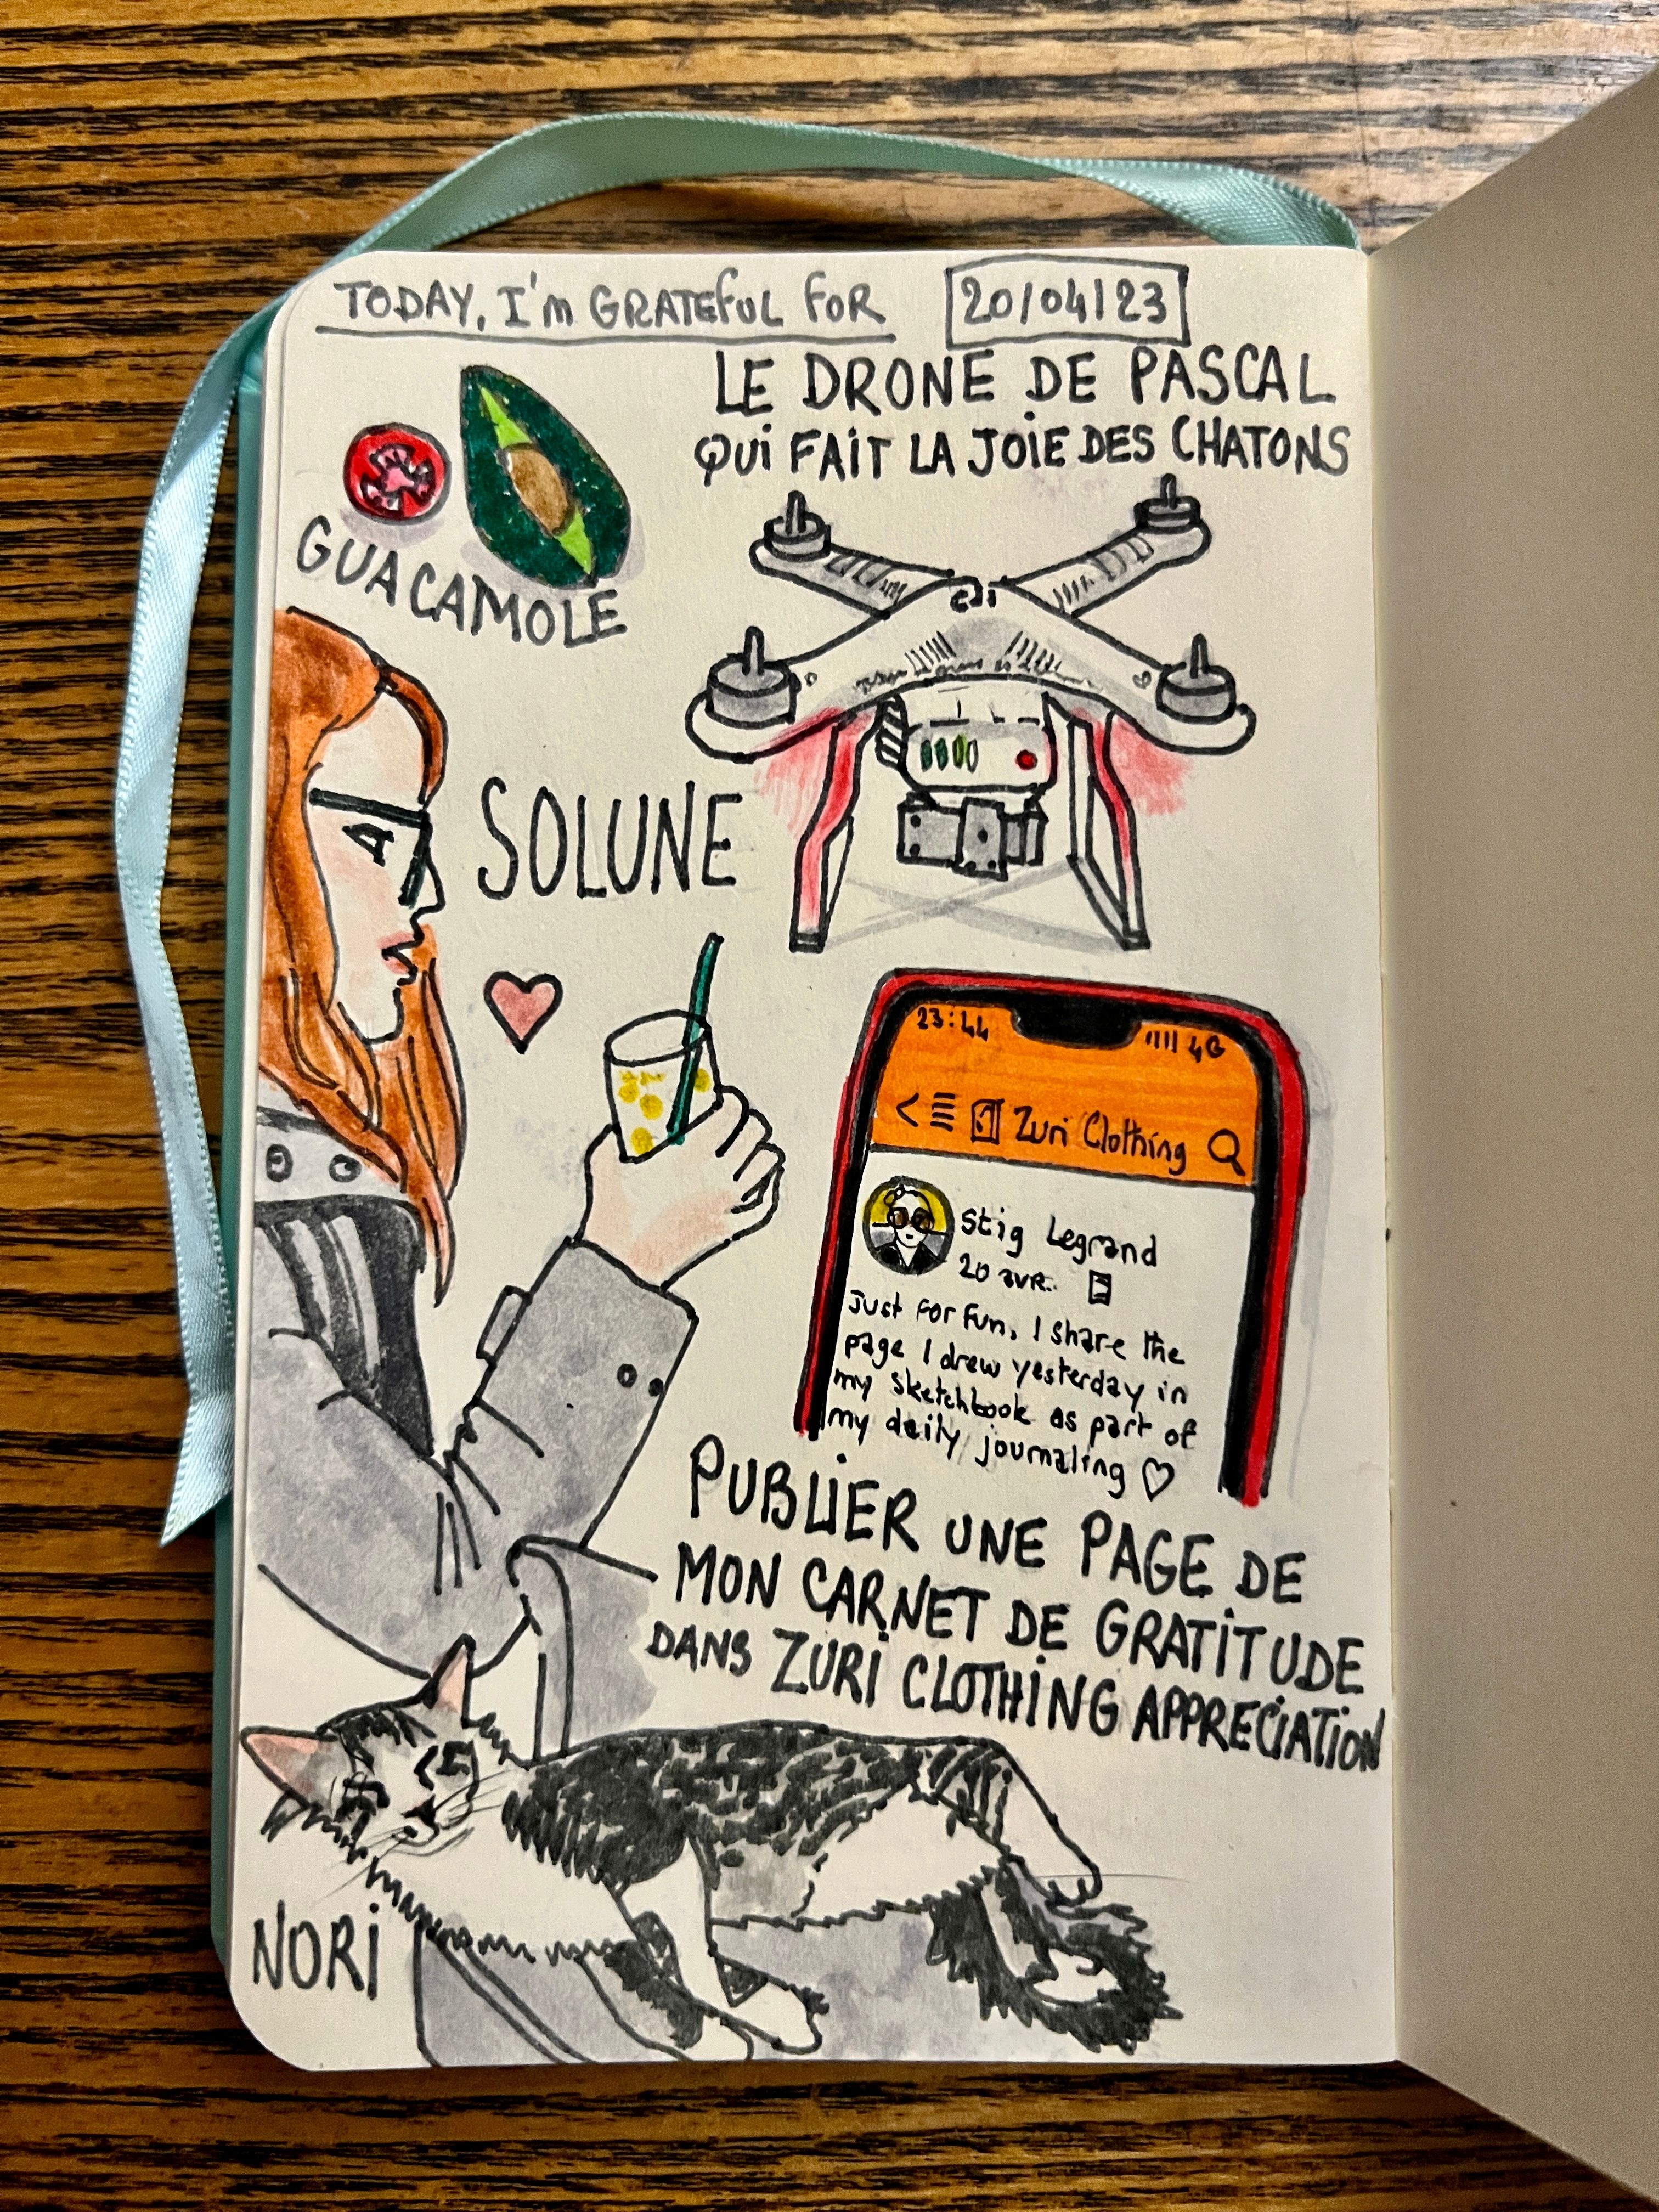 TODAY, I'm GRATEFUL FOR
20/04/23
LE DRONE DE PASCAL
QUI FAIT LA JOIE DES CHATONS
GUACAMOLE
SOLUNE
23:44
4G
< Zuri Clothing
Stig Legrand
20 avr.
Just for fun, I share the
page I drew yesterday in
my sketchbook as part of
my daily journaling ♡
PUBLIER UNE PAGE DE
MON CARNET DE GRATITUDE
DANS ZURI CLOTHING APPRECIATION
NORI